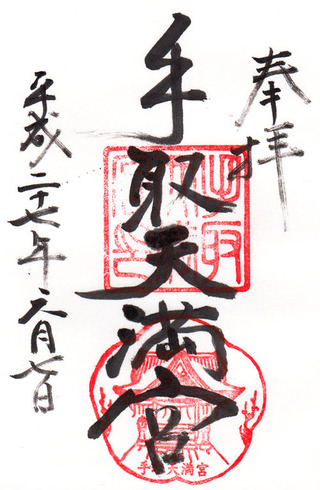 奉拝
手取天満宮
平成二十七年六月七日
手取天満宮